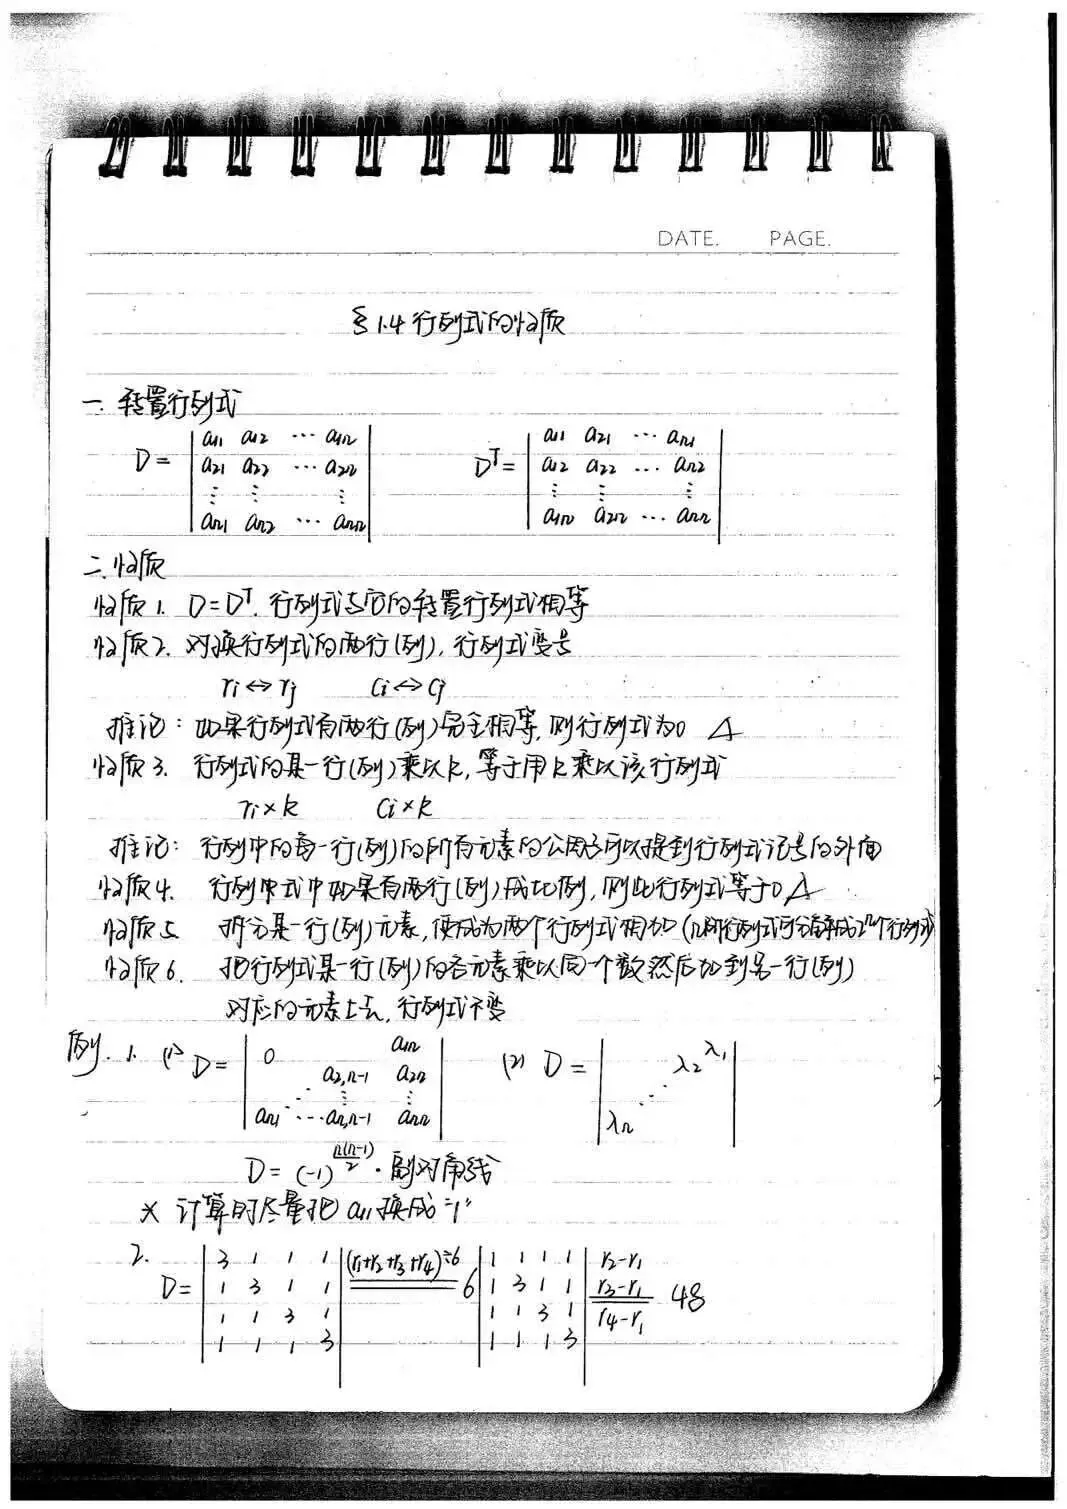 DATE. PAGE.
§1.4 行列式的性质
一. 转置行列式
D = | a11 a12 ⋯ a1n | Dᵀ = | a11 a21 ⋯ an1 |
| a21 a22 ⋯ a2n | | a12 a22 ⋯ an2 |
| ⋮ ⋮ ⋮ | | ⋮ ⋮ ⋮ |
| an1 an2 ⋯ ann | | a1n a2n ⋯ ann |
二. 性质
性质1. D=Dᵀ. 行列式与它的转置行列式相等
性质2. 对换行列式的两行(列), 行列式变号
ri↔rj ci↔cj
推论: 如果行列式有两行(列)完全相等, 则行列式为0 △
性质3. 行列式的某一行(列)乘以k, 等于用k乘以该行列式
ri×k ci×k
推论: 行列中的每一行(列)的所有元素的公因子可以提到行列式记号的外面
性质4. 行列中式中如果有两行(列)成比例, 则此行列式等于0 △
性质5 拆分某一行(列)元素, 使成为两个行列式相加 (n阶行列式可
性质6. 把行列式某一行(列)的各元素乘以同一个数然后加到另一行(列)
对应的元素上去, 行列式不变
例. 1. (1) D = | 0 a1n | (2) D = | λ1 |
| a2,n-1 a2n | | λ2 |
| ⋰ ⋮ ⋮ | | ⋰ |
| an1 ⋯ an,n-1 ann | | λn |
D = (-1)^(n(n-1)/2) · 副对角线
× 计算时尽量把 a11 换成“1”
2. D = | 3 1 1 1 | (r1+r2+r3+r4)÷6 6 | 1 1 1 1 | r2-r1
| 1 3 1 1 | | 1 3 1 1 | r3-r1 48
| 1 1 3 1 | | 1 1 3 1 | r4-r1
| 1 1 1 3 | | 1 1 1 3 |